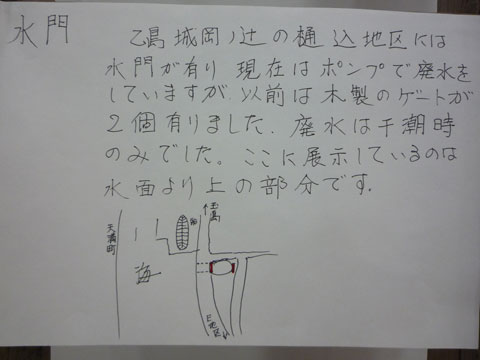 水門
乙島城岡ノ辻の樋込地区には
水門が有り 現在はポンプで廃水を
していますが、以前は木製のゲートが
2個有りました. 廃水は干潮時
のみでした。ここに展示しているのは
水面より上の部分です.
玉島
天満町
海